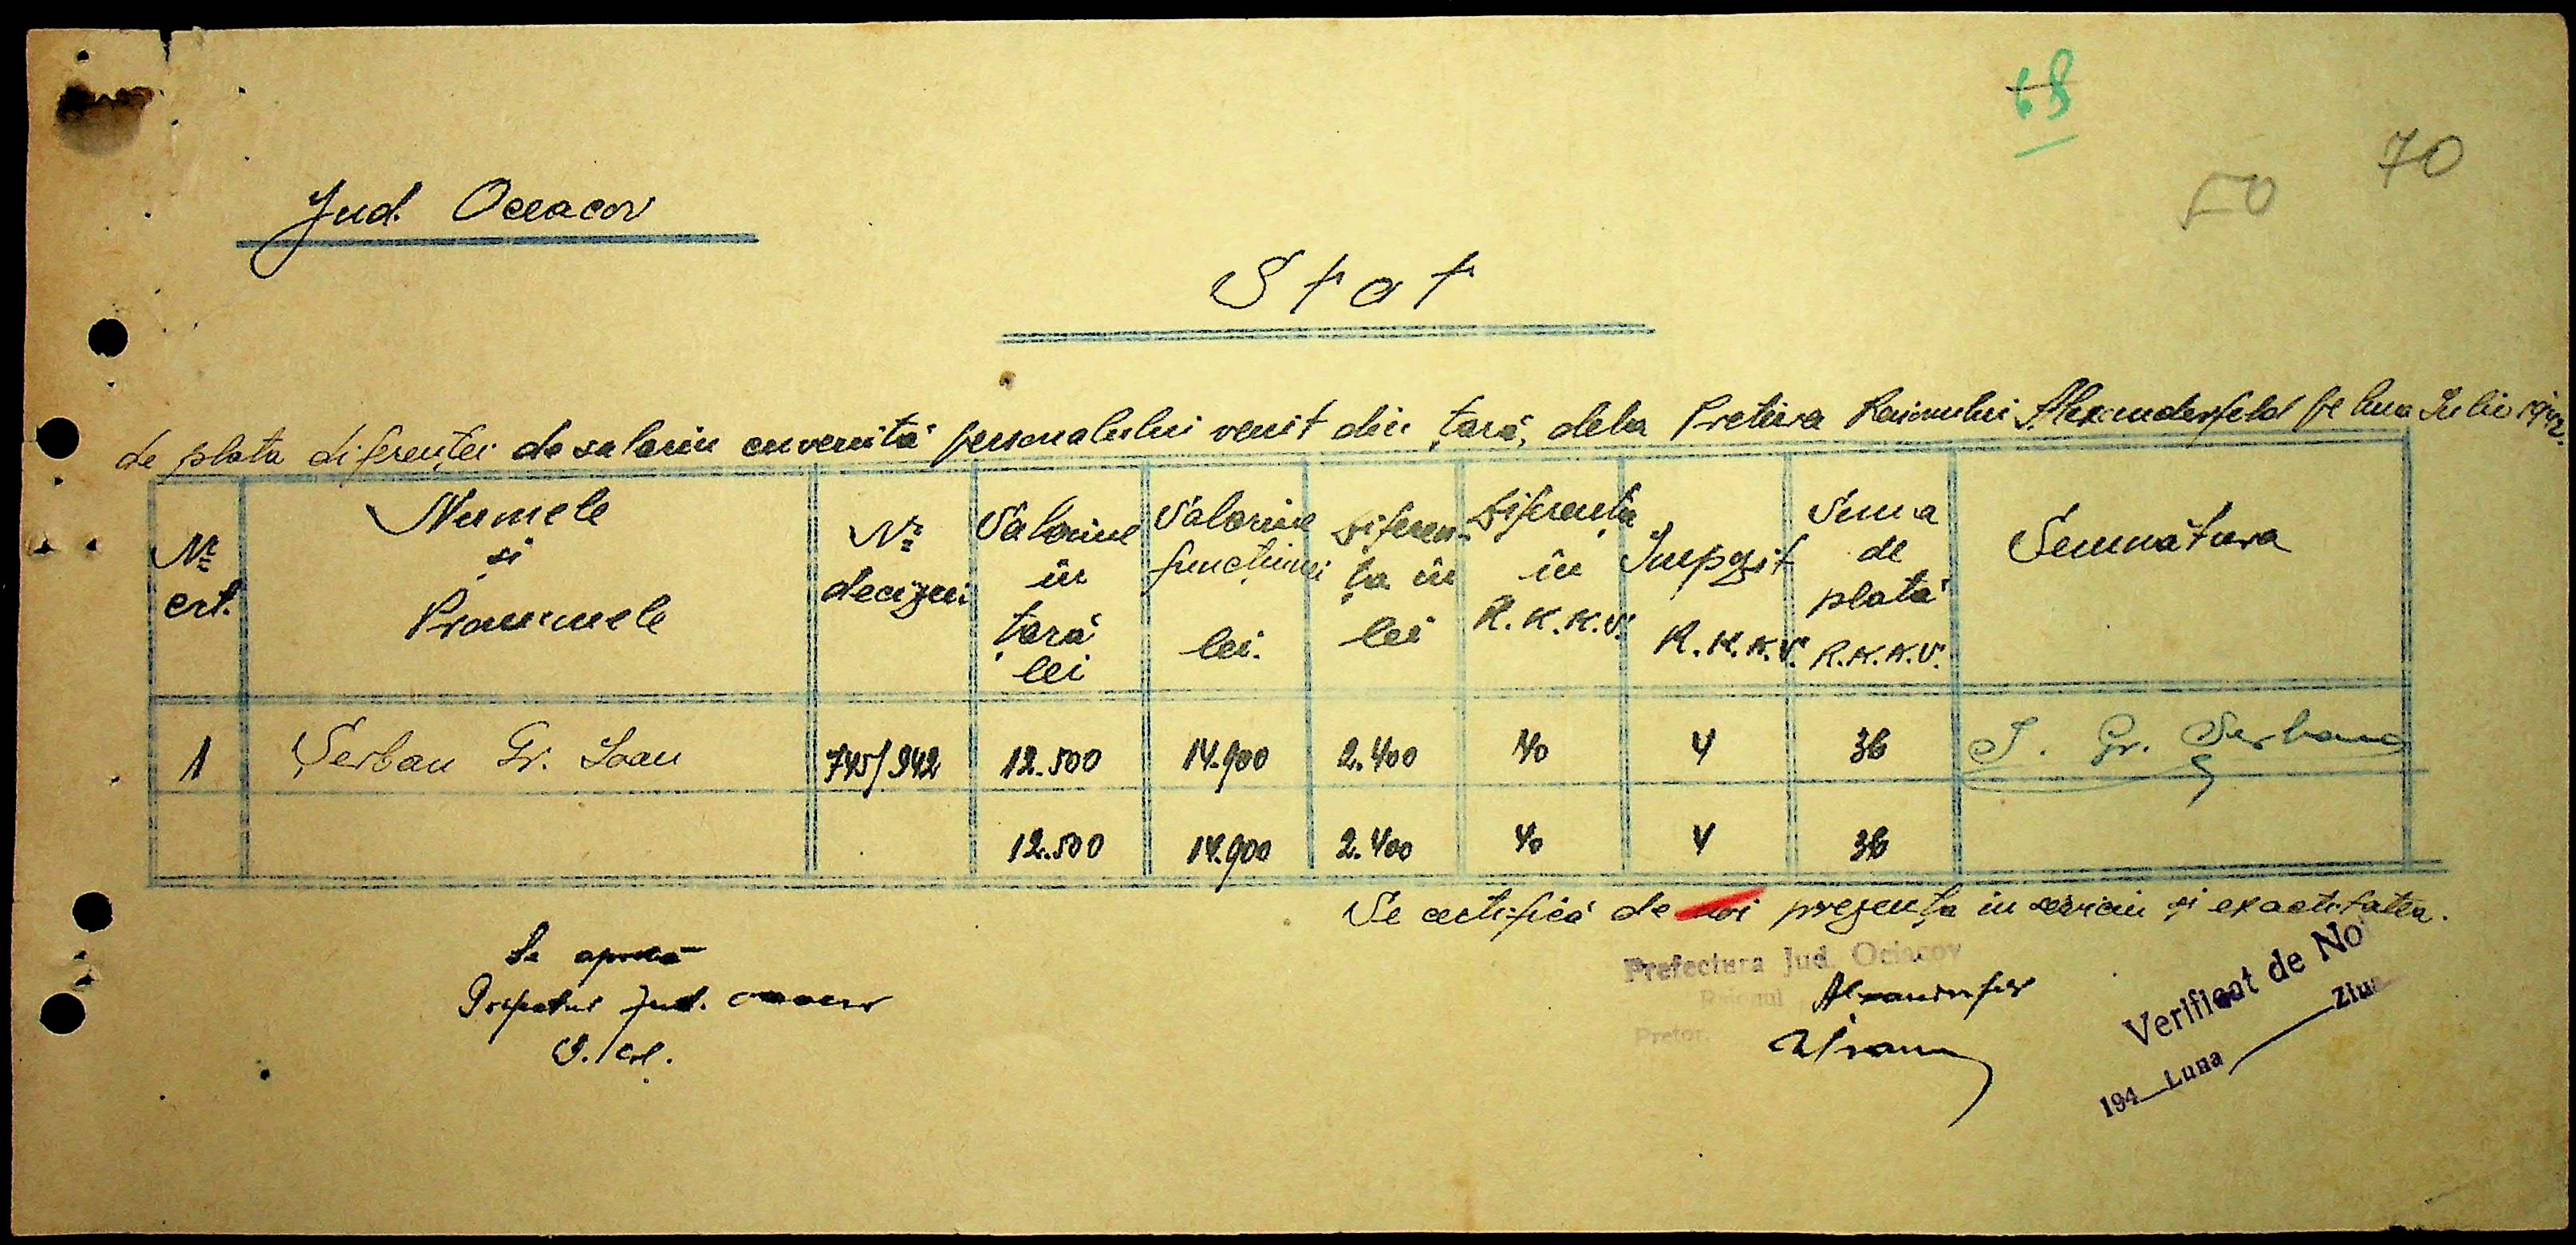 68
70
50
Jud. Oceacov
Stat
de plata diferenței de salariu cuvenită personalului venit din țară, dela Pretura Raionului Alexanderfeld pe luna Iulie 1942.
Nr. crt. | Numele și Pronumele | Nr. deciziei | Salariul în țară lei | Salariul funcțiunei lei. | Diferența în lei | Diferența în R.K.K.V. | Impozit R.K.K.V. | Suma de plată R.K.K.V. | Semnătura
1 | Șerban Gr. Ioan | 745/942 | 12.500 | 14.900 | 2.400 | 40 | 4 | 36 | I. Gr. Șerban
12.500 | 14.900 | 2.400 | 40 | 4 | 36
Se certifică de noi prezența în serviciu și exactitatea.
Se aprobă
Prefectul Jud.
Prefectura Jud. Ociacov
Raionul
Pretor
Verificat de Noi
194 Luna Ziua